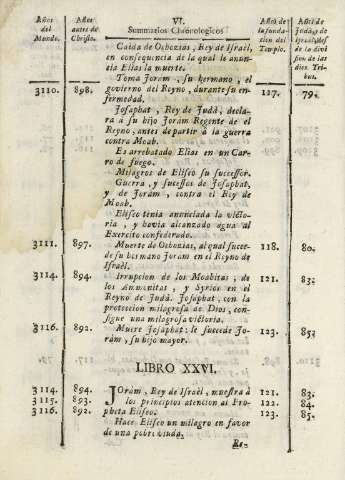 VI.
Años del Mundo.
Años antes de Christo.
Summarios Chronologicos
Años de la fundacion del Templo.
Años de Judà, y de Israel desde la division de las diez Tribus.
Caida de Ochozias, Rey de Israèl,
en consequencia de la qual le anuncia
Elias la muerte.
Toma Joram, su hermano, el
3110. 898. govierno del Reyno, durante su enfermedad. 117. 79.
Josaphat, Rey de Judà, declara
à su hijo Joràm Regente de el
Reyno, antes de partir à la guerra
contra Moab.
Es arrebatado Elias en un Carro
de fuego.
Milagros de Eliseo su successor.
Guerra, y sucessos de Josaphat,
y de Joràm, contra el Rey de
Moab.
Eliseo tenia anunciada la victoria,
y havia alcanzado agua al
Exercito confederado.
3111. 897. Muerte de Ochozias, al qual succede 118. 80.
su hermano Joràm en el Reyno
de Israèl.
3114. 894. Irrupcion de los Moabitas, de 121. 83.
los Ammonitas, y Syrios en el
Reyno de Judà. Josaphat, con la
proteccion milagrosa de Dios, consigue
una milagrosa victoria.
3116. 892. Muere Josaphat: le succede Joràm, 123. 85.
su hijo mayor.
LIBRO XXVI.
3114. 894. Joràm, Rey de Israèl, muestra à 121. 83.
3115. 893. los principios atencion al Propheta 122. 84.
3116. 892. Eliseo. 123. 85.
Hace Eliseo un milagro en favor
de una pobre viuda.